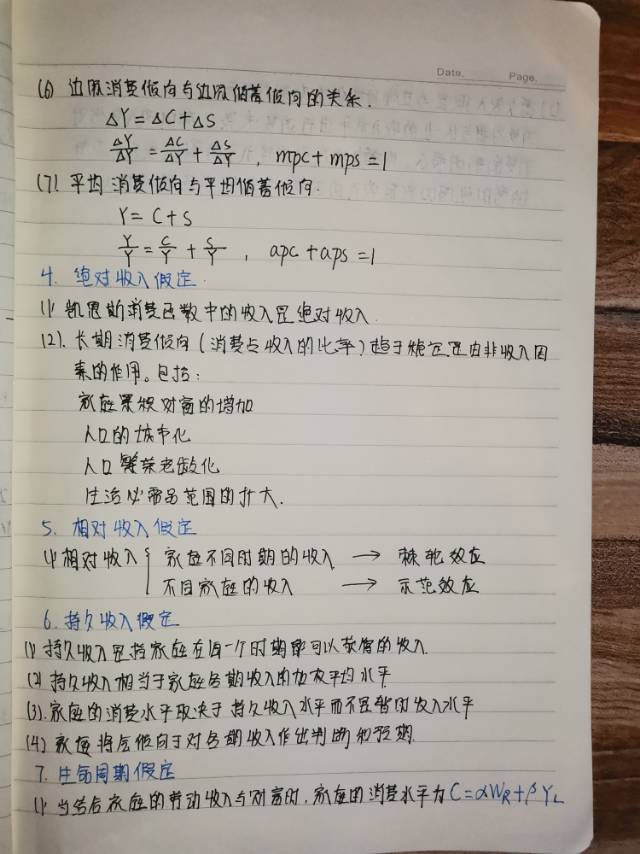 Date.    Page.
(6) 边际消费倾向与边际储蓄倾向的关系.
ΔY = ΔC + ΔS
ΔY/ΔY = ΔC/ΔY + ΔS/ΔY , mpc + mps = 1
(7) 平均消费倾向与平均储蓄倾向.
Y = C + S
Y/Y = C/Y + S/Y , apc + aps = 1
4. 绝对收入假定.
(1) 凯恩斯消费函数中的收入是绝对收入
(2). 长期消费倾向(消费占收入的比率)趋于稳定是由非收入因
素的作用。包括:
家庭累积财富的增加
人口的城市化
人口 老龄化
生活必需品范围的扩大.
5. 相对收入假定
(1) 相对收入 { 家庭不同时期的收入 → 棘轮效应
不同家庭的收入 → 示范效应
6. 持久收入假定
(1) 持久收入是指家庭在每一个时期都可以获得的收入.
(2) 持久收入相当于家庭各期收入的加权平均水平
(3). 家庭的消费水平取决于持久收入水平而不是暂时收入水平
(4) 家庭将会倾向于对各期收入作出判断和预期.
7. 生命周期假定
(1) 当给定家庭的劳动收入与财富时, 家庭的消费水平为 C = αWR + βYL